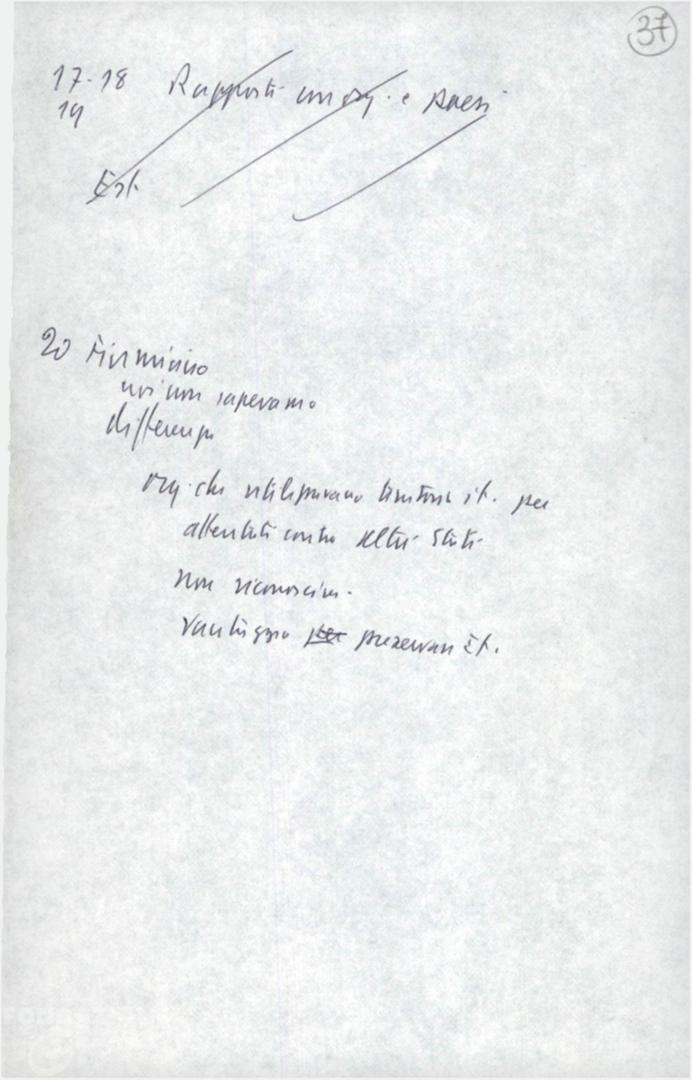 37
17-18 Rapporti con org. e paesi
19
Est
20 Fiumicino
noi non sapevamo
differenze
org. che utilizzavano territorio it. per
attentati contro altri Stati
non riconoscim.
vantaggio per preservare it.